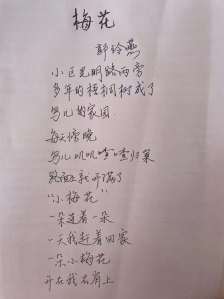 梅花
郭玲燕
小区光明路两旁
多年的梧桐树成了
鸟儿的家园
每天傍晚
鸟儿叽叽喳喳归巢
路面就开满了
“小梅花”
一朵连着一朵
一天我赶着回家
一朵小梅花
开在我右肩上